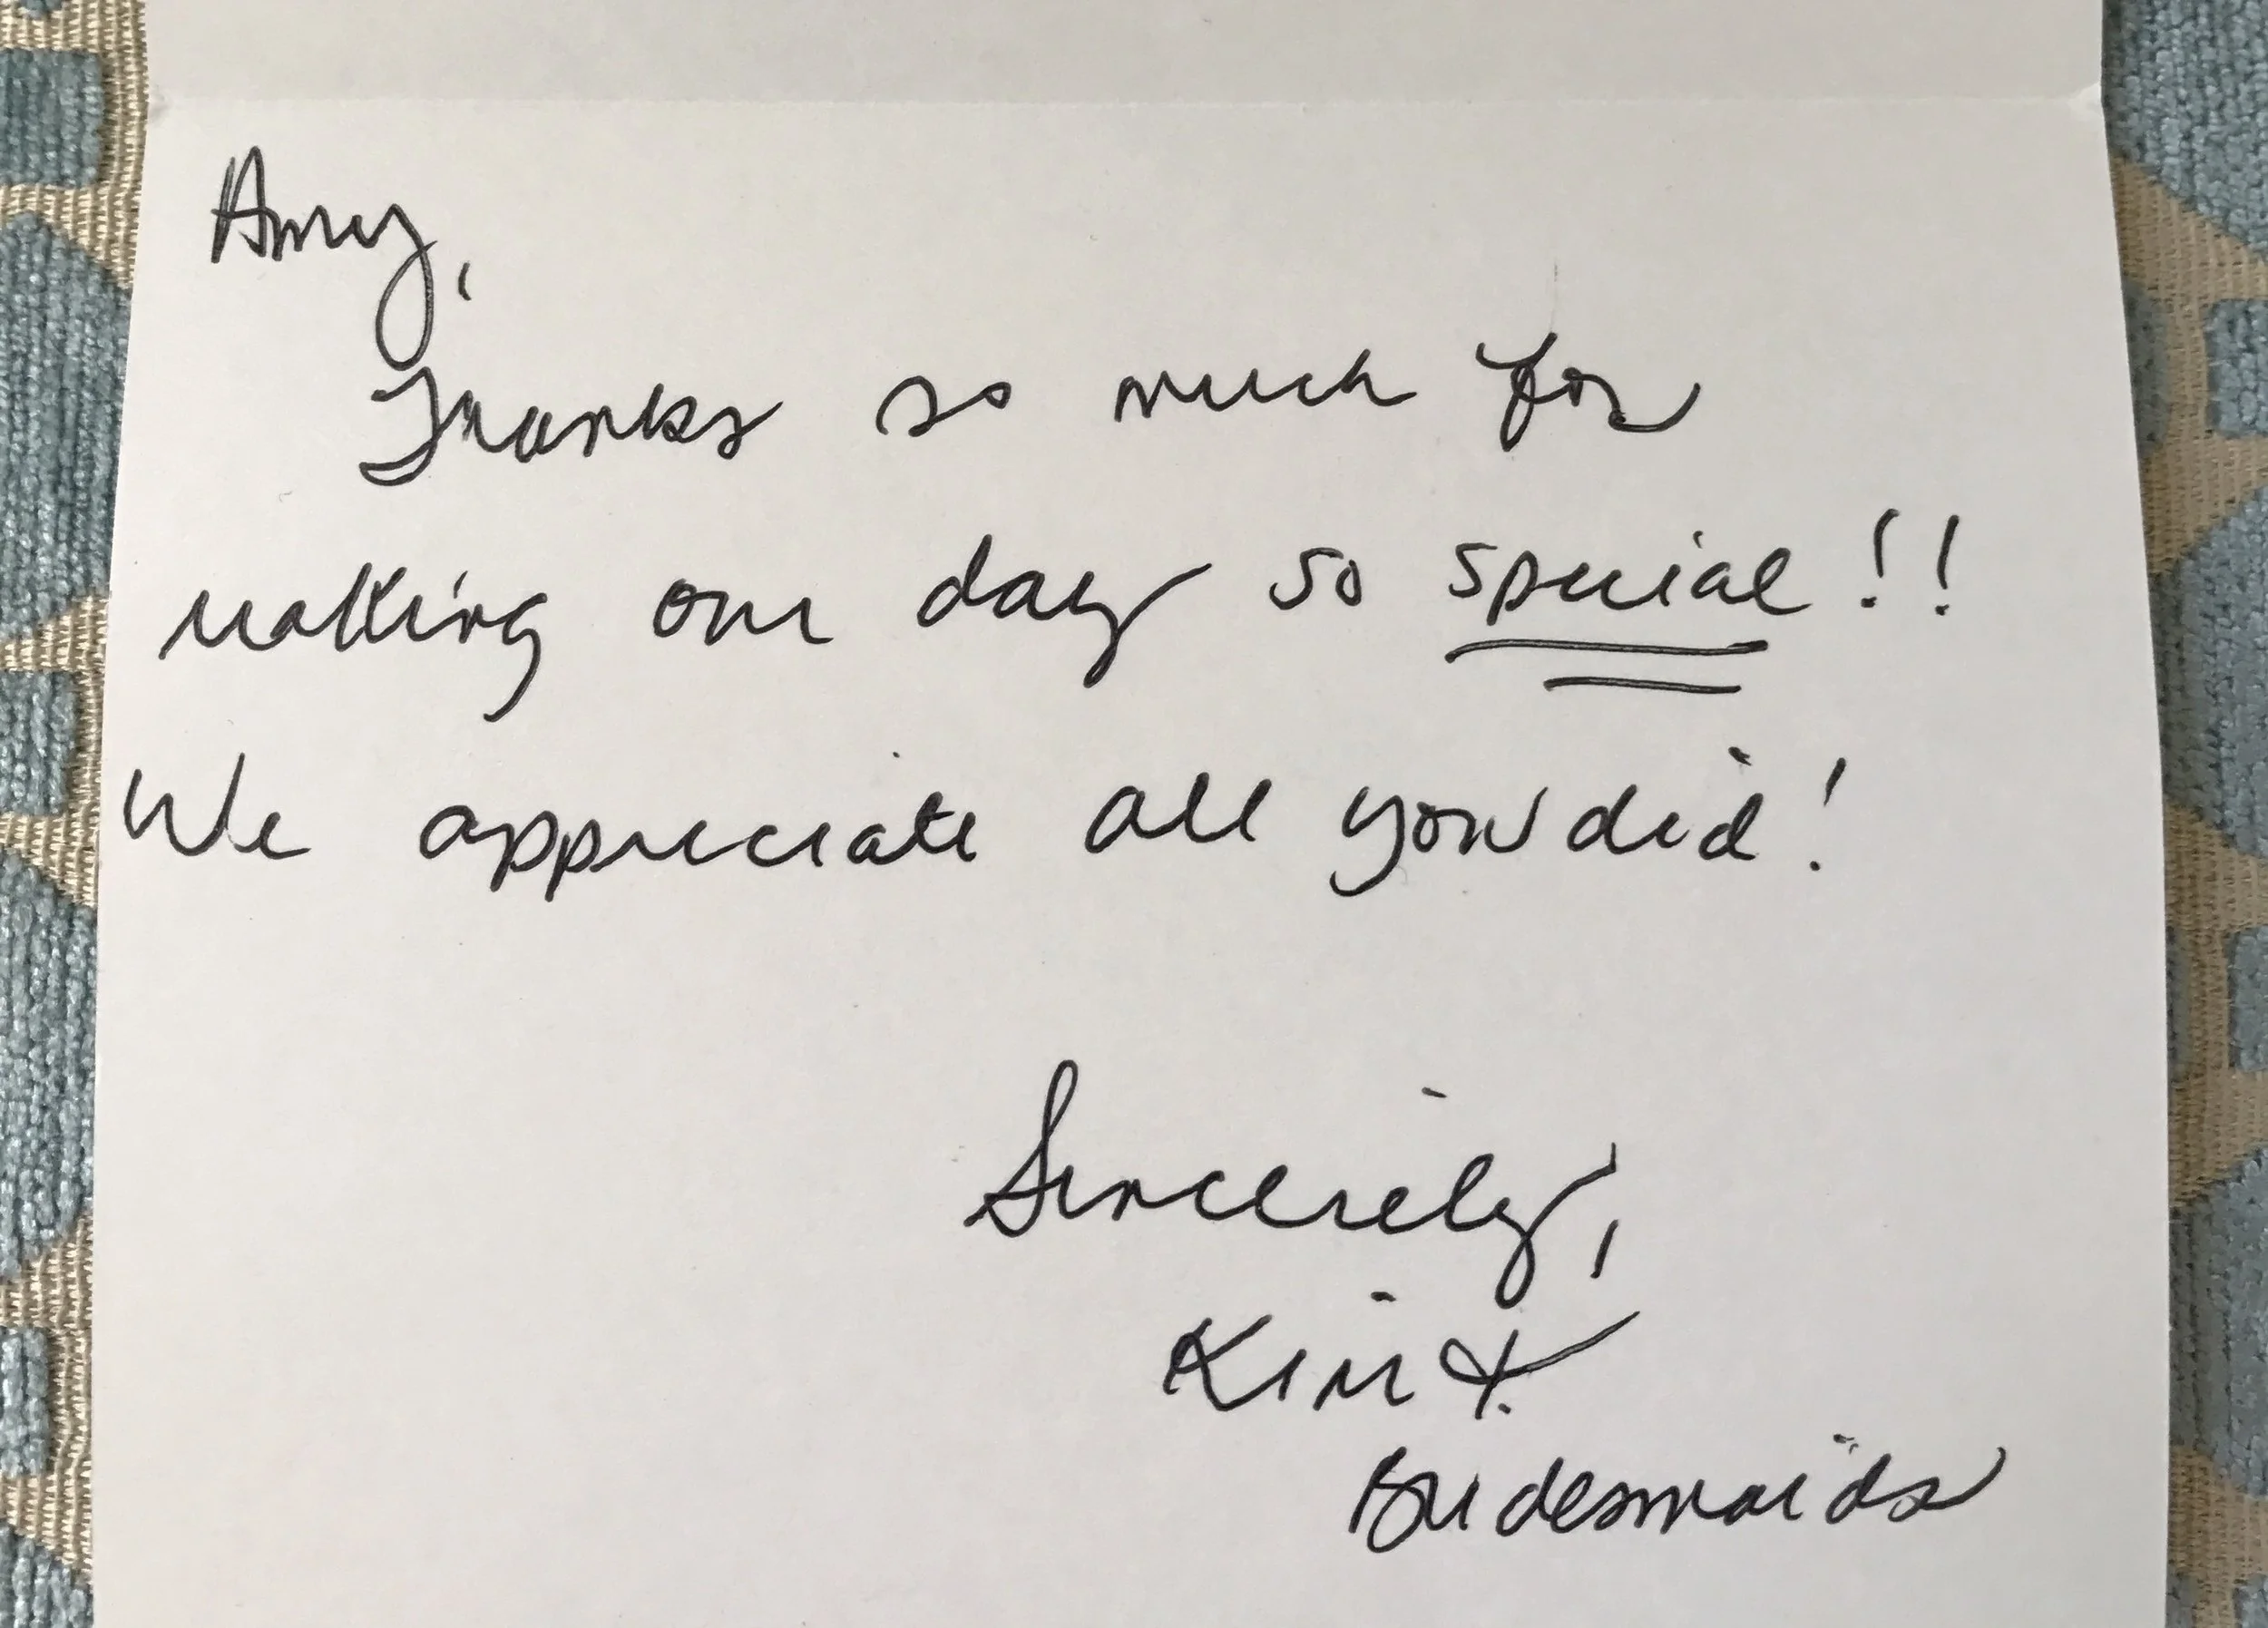 Amy,
Thanks so much for
making our day so special!!
We appreciate all you did!
Sincerely,
Kim &
Bridesmaids